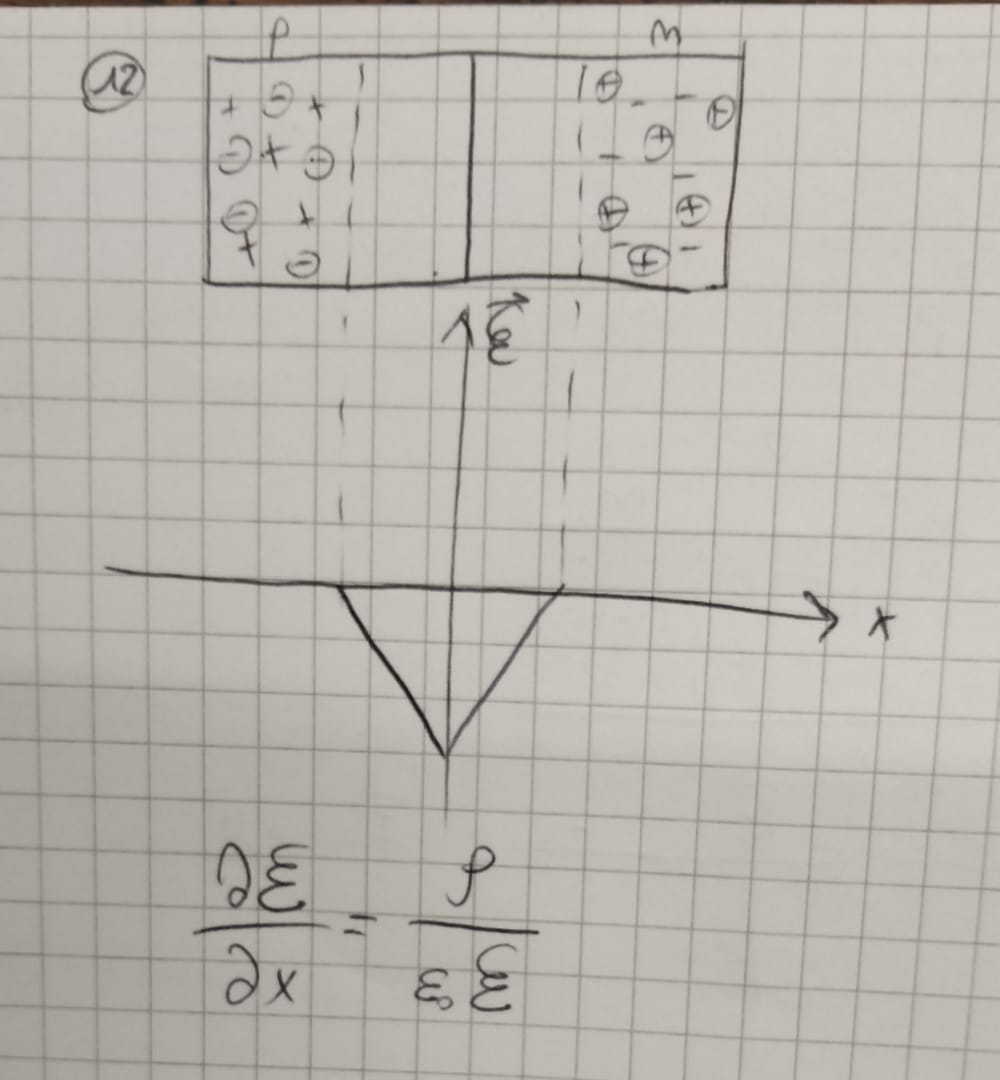 12
p n
+ ⊖ +
⊖ + ⊖
⊖ +
+ ⊖
⊕ - - ⊕
- ⊕
-
⊕ ⊕
- ⊕ -
ℰ⃗
x
∂ℰ/∂x = ρ/ε₀ℰ